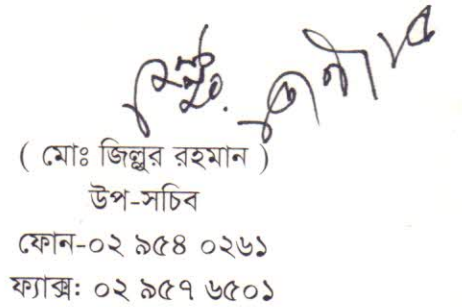 ( মোঃ জিল্লুর রহমান )
উপ-সচিব
ফোন-০২ ৯৫৪ ০২৬১
ফ্যাক্সঃ ০২ ৯৫৭ ৬৫০১